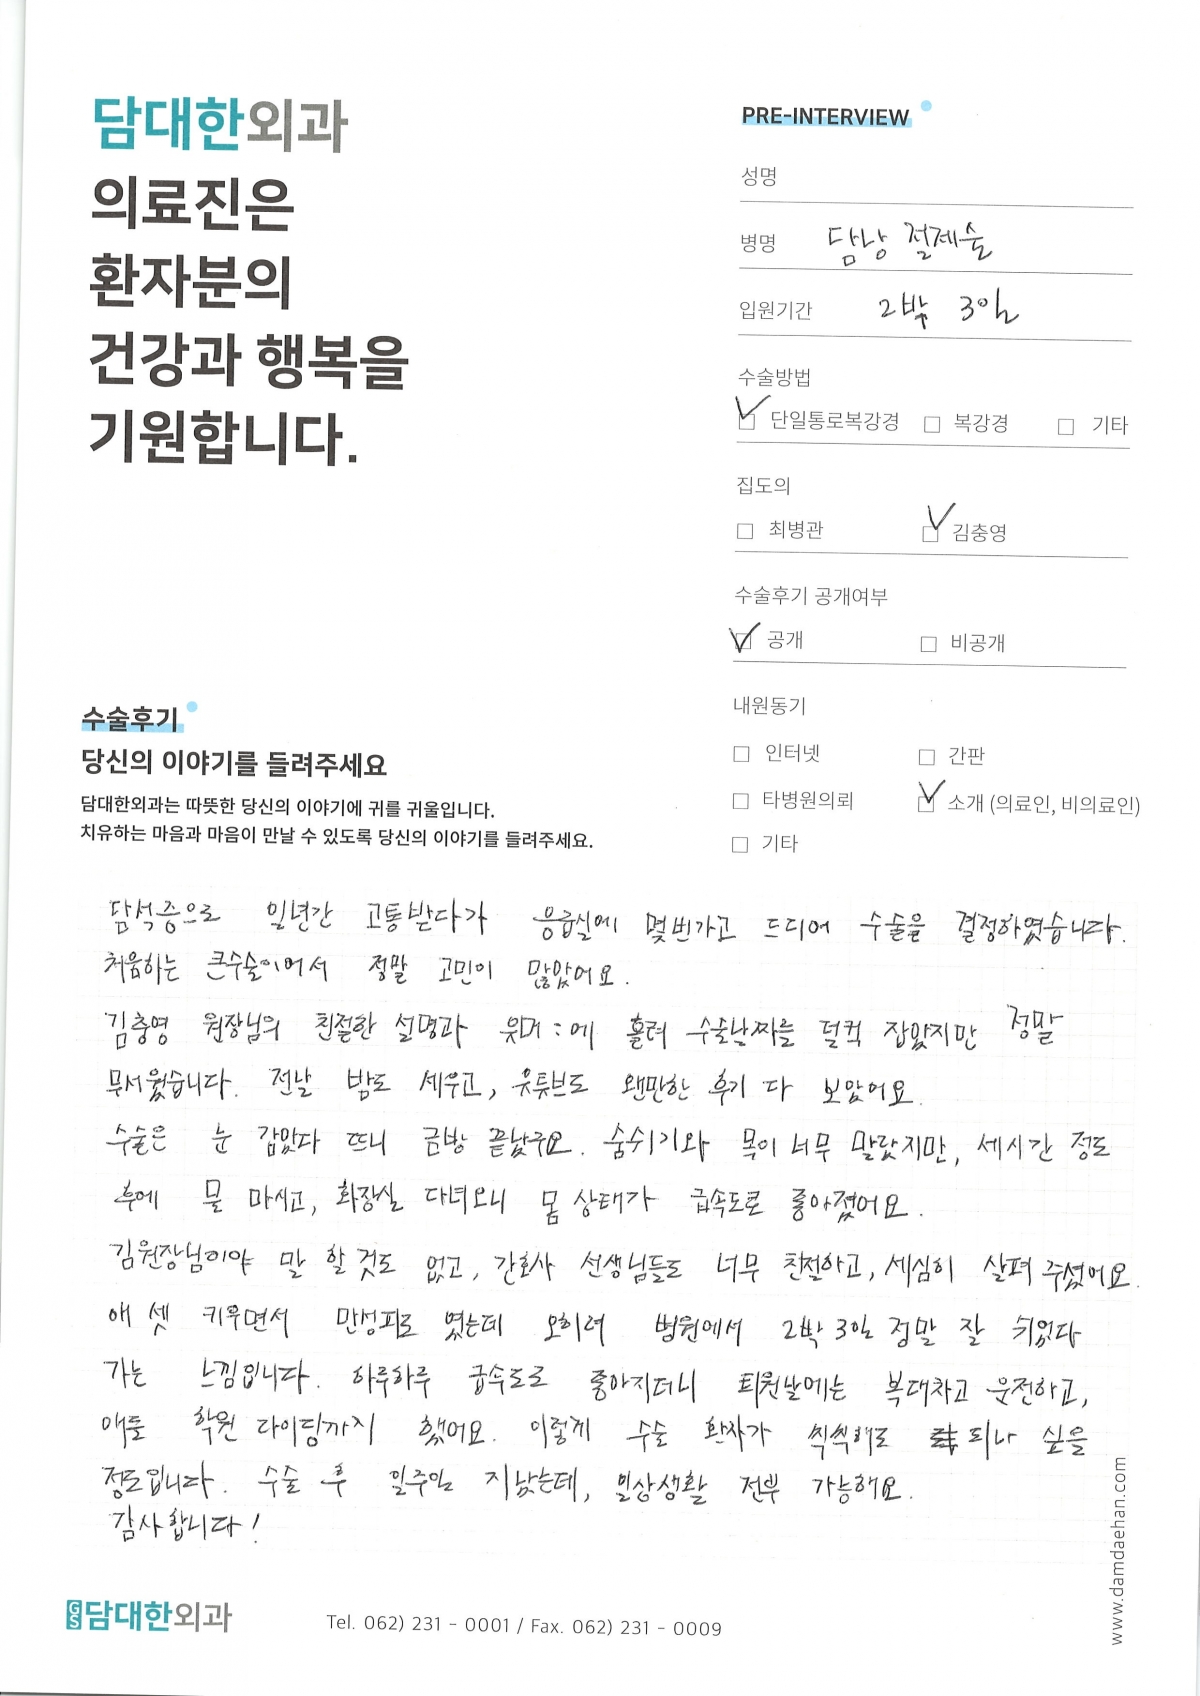 담대한외과
의료진은
환자분의
건강과 행복을
기원합니다.
PRE-INTERVIEW
성명
병명 담낭 절제술
입원기간 2박 3일
수술방법
단일통로복강경 복강경 기타
집도의
최병관 김충영
수술후기 공개여부
공개 비공개
내원동기
인터넷 간판
타병원의뢰 소개 (의료인, 비의료인)
기타
수술후기
당신의 이야기를 들려주세요
담대한외과는 따뜻한 당신의 이야기에 귀를 귀울입니다.
치유하는 마음과 마음이 만날 수 있도록 당신의 이야기를 들려주세요.
담석증으로 일년간 고통받다가 응급실에 몇번가고 드디어 수술을 결정하였습니다.
처음하는 큰수술이어서 정말 고민이 많았어요.
김충영 원장님의 친절한 설명과 유머:에 홀려 수술날짜를 덜컥 잡았지만 정말
무서웠습니다. 전날 밤도 세우고, 유튜브도 왠만한 후기 다 보았어요.
수술은 눈 감았다 뜨니 금방 끝났구요. 숨쉬기와 목이 너무 말랐지만, 세시간 정도
후에 물 마시고, 화장실 다녀오니 몸 상태가 급속도로 좋아졌어요.
김원장님이야 말 할 것도 없고, 간호사 선생님들도 너무 친절하고, 세심히 살펴 주셨어요.
애 셋 키우면서 만성피로 였는데 오히려 병원에서 2박 3일 정말 잘 쉬었다
가는 느낌입니다. 하루하루 급속도로 좋아지더니 퇴원날에는 복대차고 운전하고,
애들 학원 라이딩까지 했어요. 이렇게 수술 환자가 씩씩해도 되나 싶을
정도입니다. 수술 후 일주일 지났는데, 일상생활 전부 가능해요.
감사합니다!
GS 담대한외과
Tel. 062) 231 - 0001 / Fax. 062) 231 - 0009
www.damdaehan.com